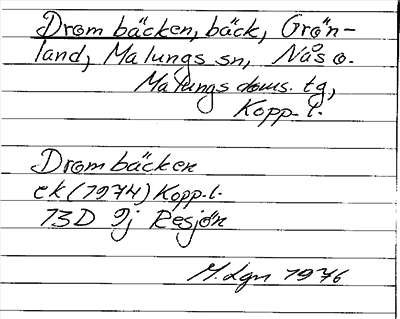 Drombäcken, bäck, Grön-
land, Malungs sn, Nås o.
Malungs doms. tg,
Kopp. l.
Drombäcken
ek (1974) Kopp. l.
13D 9j Resjön
M. Lgn 1976